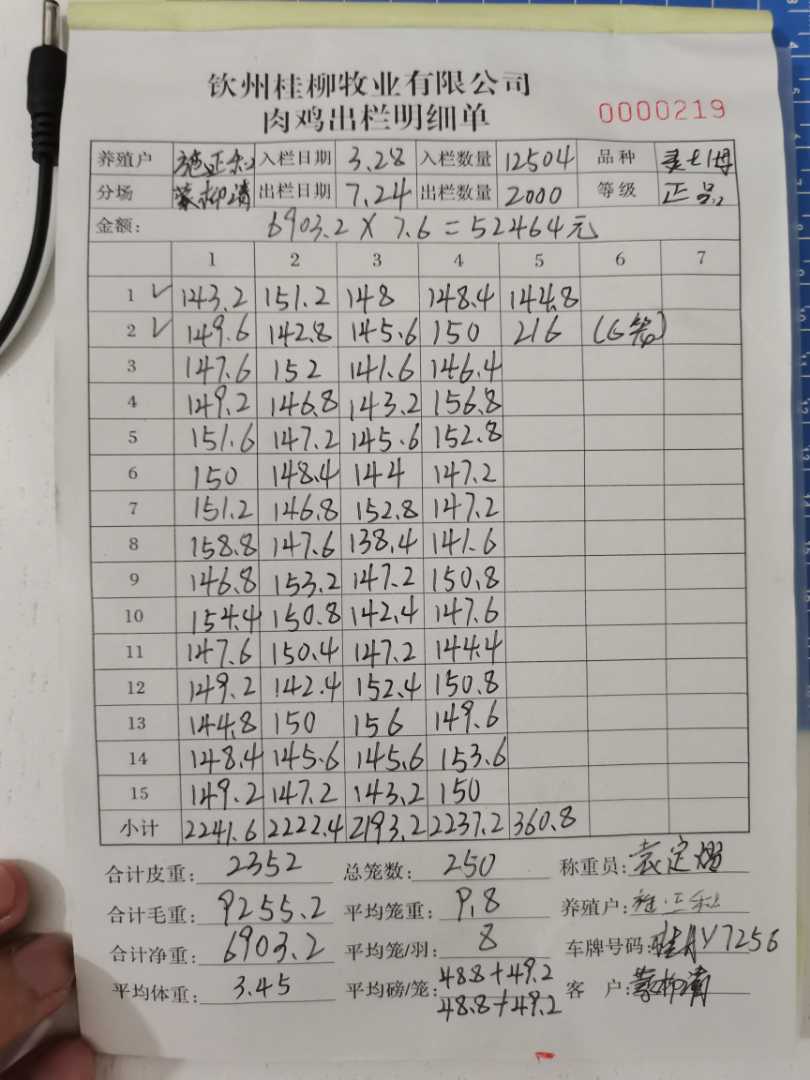 钦州桂柳牧业有限公司
肉鸡出栏明细单 0000219
养殖户 施正利 入栏日期 3.28 入栏数量 12504 品种
分场 蒙柳清 出栏日期 7.24 出栏数量 2000 等级 正品
金额: 6903.2 X 7.6 = 52464元
1 2 3 4 5 6 7
1 143.2 151.2 148 148.4 144.8
2 149.6 142.8 145.6 150 216 (6笼)
3 147.6 152 141.6 146.4
4 149.2 146.8 143.2 156.8
5 151.6 147.2 145.6 152.8
6 150 148.4 144 147.2
7 151.2 146.8 152.8 147.2
8 158.8 147.6 138.4 141.6
9 146.8 153.2 147.2 150.8
10 154.4 150.8 142.4 147.6
11 147.6 150.4 147.2 144.4
12 149.2 142.4 152.4 150.8
13 144.8 150 156 149.6
14 148.4 145.6 145.6 153.6
15 149.2 147.2 143.2 150
小计 2241.6 2222.4 2193.2 2237.2 360.8
合计皮重: 2352 总笼数: 250 称重员: 袁定
合计毛重: 9255.2 平均笼重: 9.8 养殖户: 施正利
合计净重: 6903.2 平均笼/羽: 8 车牌号码: 桂AY7256
平均体重: 3.45 平均磅/笼: 48.8+49.2 客 户: 蒙柳清
48.8+49.2